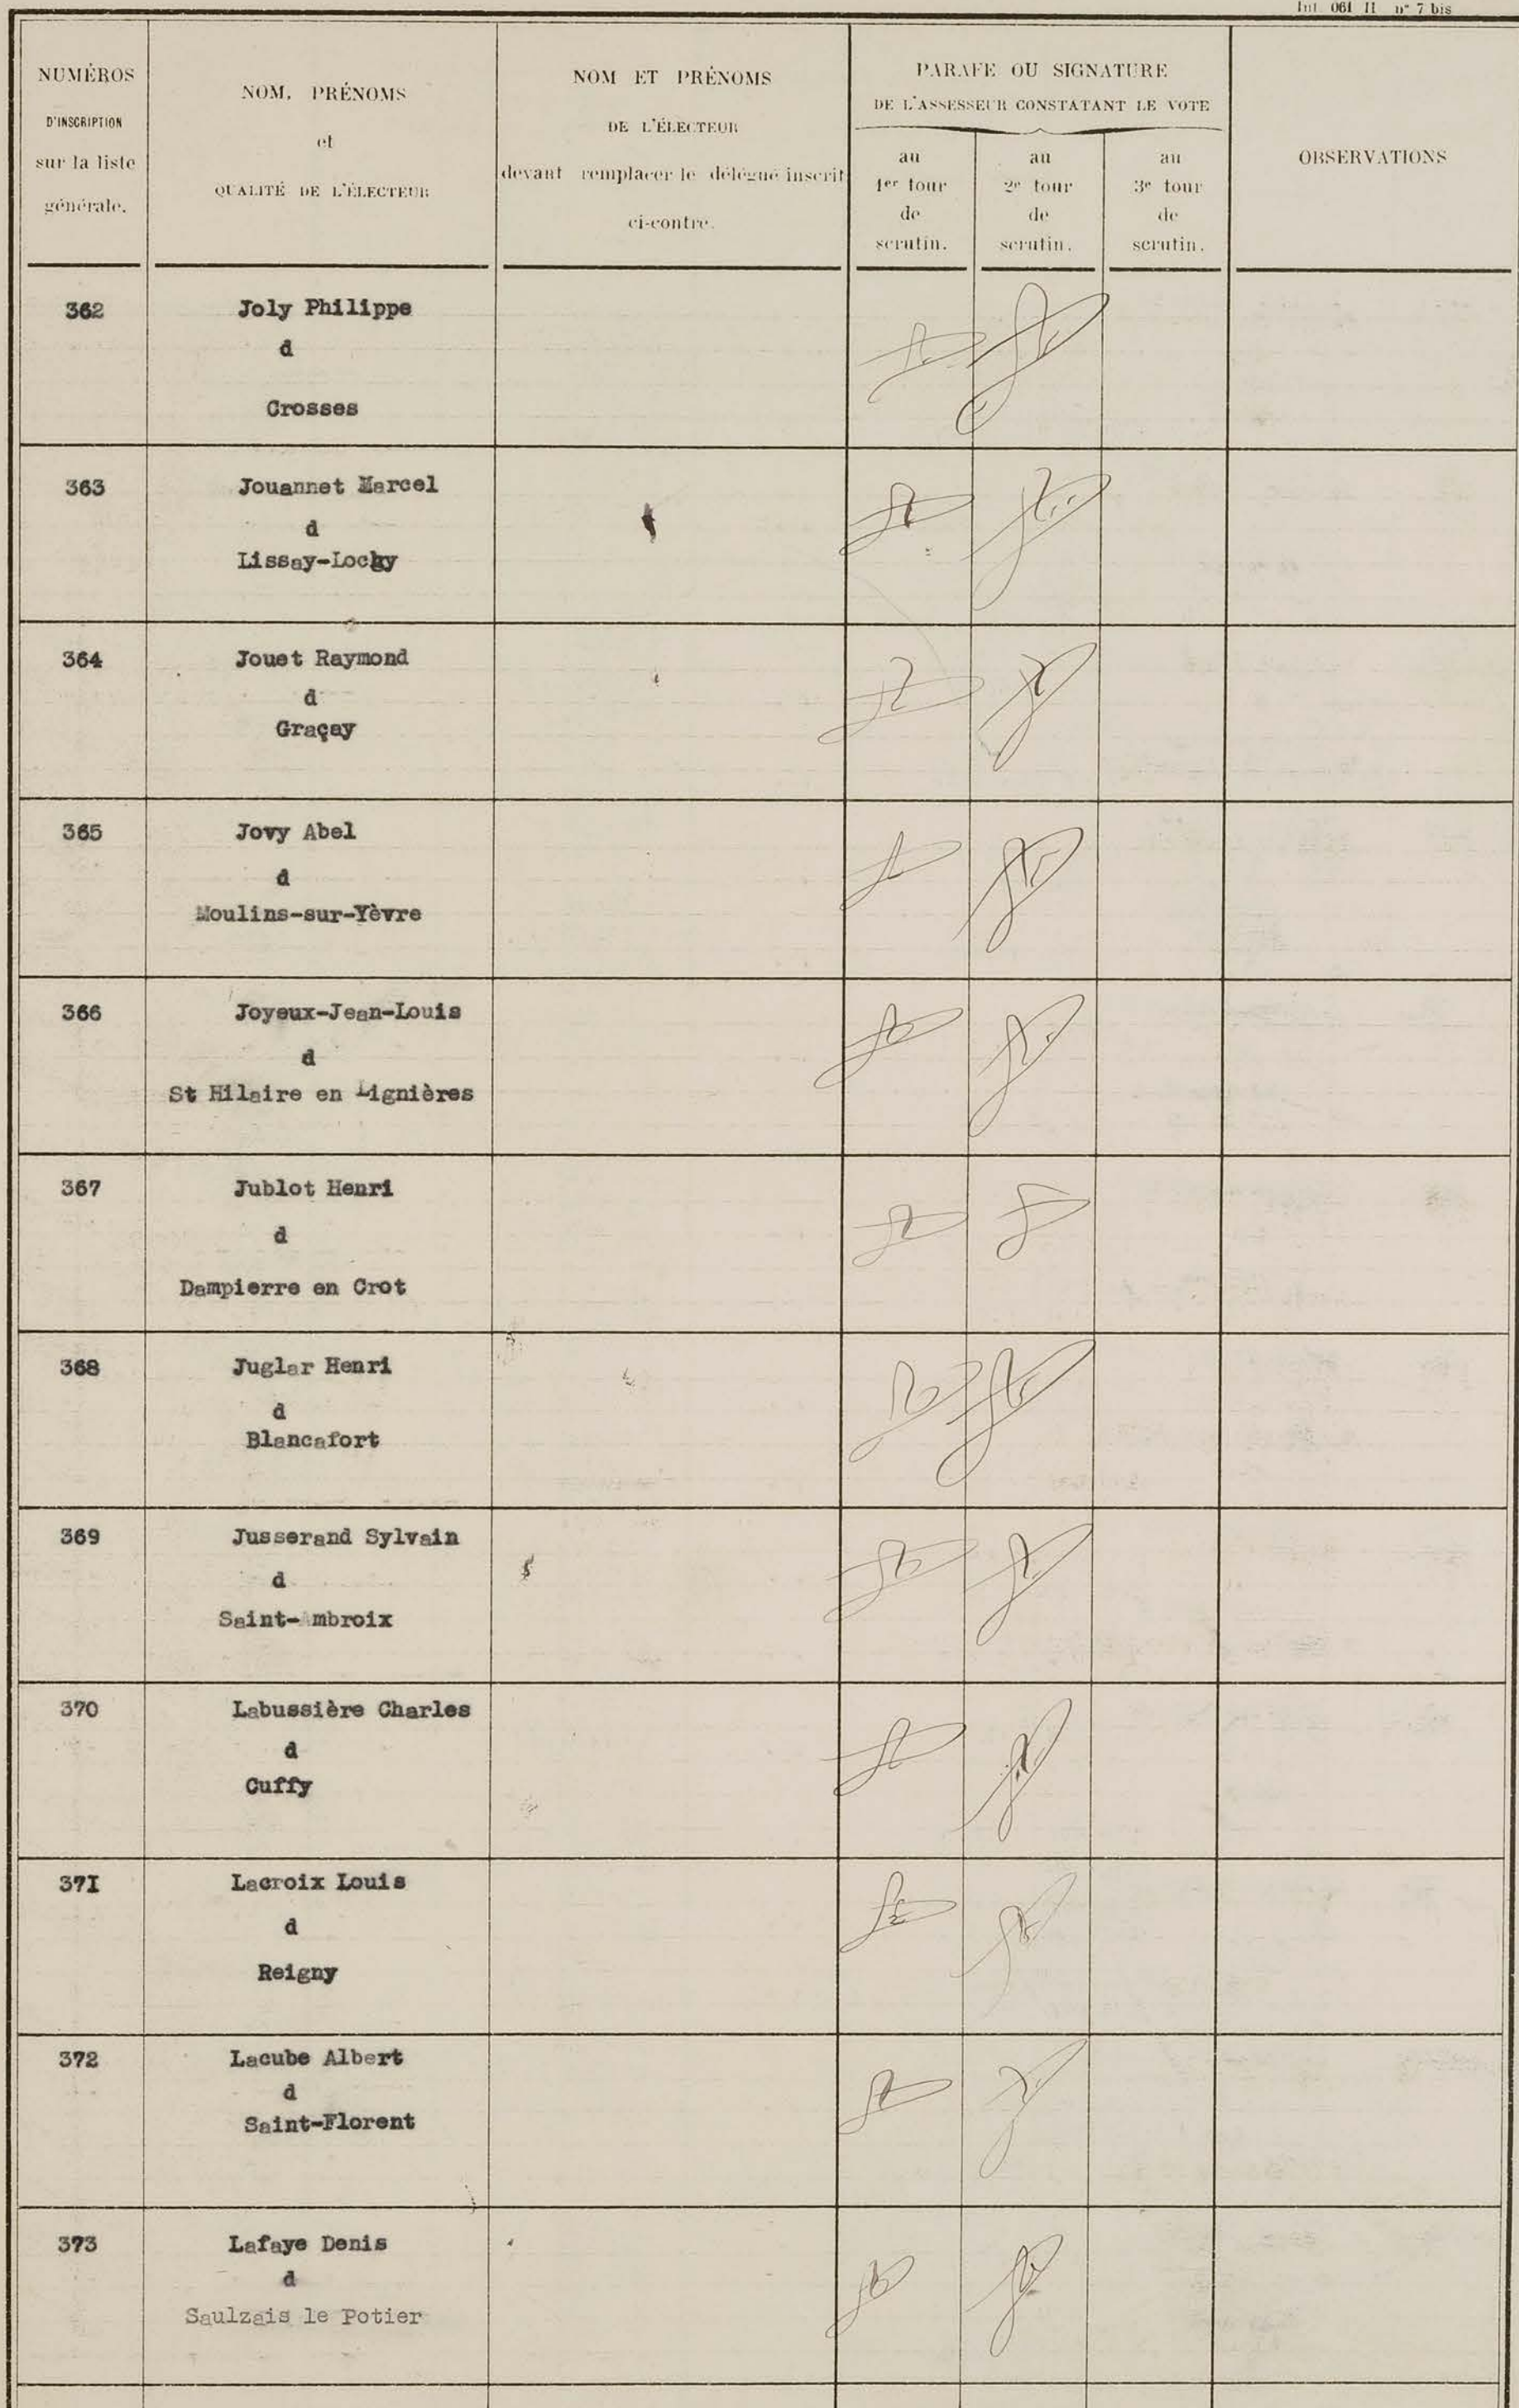 Int. 061 II n° 7 bis
NUMÉROS
D'INSCRIPTION
sur la liste
générale.
NOM, PRÉNOMS
et
QUALITÉ DE L'ÉLECTEUR
NOM ET PRÉNOMS
DE L'ÉLECTEUR
devant remplacer le délégué inscrit
ci-contre.
PARAFE OU SIGNATURE
DE L'ASSESSEUR CONSTATANT LE VOTE
au
1er tour
de
scrutin.
au
2e tour
de
scrutin.
au
3e tour
de
scrutin.
OBSERVATIONS
362 Joly Philippe
d
Crosses
363 Jouannet Marcel
d
Lissay-Lochy
364 Jouet Raymond
d
Graçay
365 Jovy Abel
d
Moulins-sur-Yèvre
366 Joyeux-Jean-Louis
d
St Hilaire en Lignières
367 Jublot Henri
d
Dampierre en Crot
368 Juglar Henri
d
Blancafort
369 Jusserand Sylvain
d
Saint-Ambroix
370 Labussière Charles
d
Cuffy
37I Lacroix Louis
d
Reigny
372 Lacube Albert
d
Saint-Florent
373 Lafaye Denis
d
Saulzais le Potier